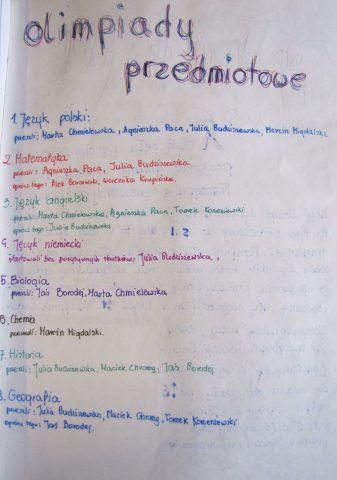 olimpiady
przedmiotowe
1. Język polski:
przeszli: Marta Chmielewska, Agnieszka Paca, Julia Budziszewska, Marcin Migdalski.
2. Matematyka
przeszli: Agnieszka Paca, Julia Budziszewska
oprócz tego: Alek Borowski, Weronika Krupińska,
3. Język angielski
przeszli: Marta Chmielewska, Agnieszka Paca, Tomek Korzeniewski
oprócz tego: Julia Budziszewska
4. Język niemiecki
startowali bez pozytywnych skutków: Julia Budziszewska,
5. Biologia
przeszli: Jaś Borodej, Marta Chmielewska
6. Chemia
przeszedł: Marcin Migdalski.
7. Historia
przeszli: Julia Budziszewska, Maciek Chrzanę, Jaś Borodej
8. Geografia
przeszli: Julia Budziszewska, Maciek Tomek Korzeniewski
oprócz tego: Jaś Borodej.